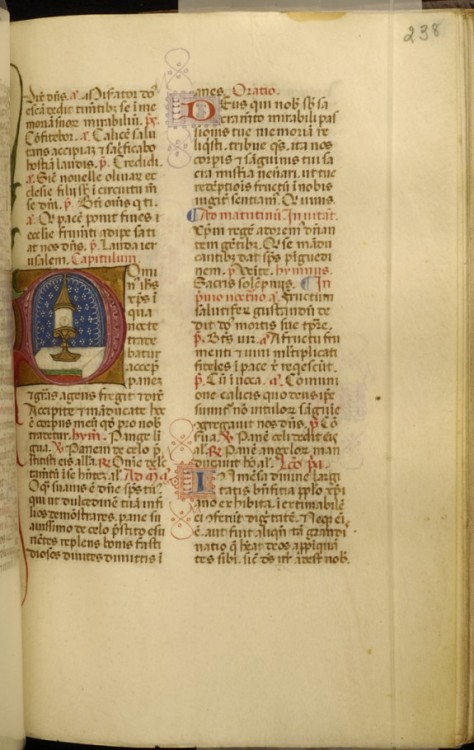 238
Dixit dns. a. Misator do
esca dedit timetibz se i me
moria suor mirabiliu. ps.
Cofitebor. a. Calice salu
taris accipiaz et sacficabo
hostia laudis. p. Credidi.
a. Sic novelle olivar ec
clesie filij sit i circuitu m
se dni. p. Bti oms q ti.
a. Qui pace ponit fines
ecclie frumti adipe sati
at nos dns. p. Lauda ier
usalem. Capitulum.
Omi
n' ihs
xps i
qua
nocte
trade
batur
accep
panez
et gras agens fregit et dixit
Accipite et maducate hoc
e corpus meu qd pro nob
tradetur. hym. Pange li
gua. v. Panem de celo p
stitisti eis alla. R. Omne delec
tametu i se hntez al. Ad mag. a.
O q suavis e dne sps tu
qui ut dulcedine tua in fi
lios demostrares. pane su
avissimo de celo pstito esu
rietes reples bonis fasti
diosos divites dimittis i
anes. Oratio.
Deus qui nob sb sa
cramto mirabili pas
sionis tue memoria re
liqsti. tribue qs. ita nos
corpis et saguinis tui sa
cra misteria venerari. ut tue
redeptiois fructu i nobis
iugit sentiam. Qui vivis.
Ad matutinu Invitat.
Xpm rege adorem dnan
tem getibz. Qui se madu
cantibz dat sps piguedi
nem. p. Venite. hymnus.
Sacris solepnijs. In
primo nocturno a. Fructum
salutiferu gustandu de
dit dns mortis sue tpre.
p. Bts vir. a. A fructu fru
menti et vini multiplicati
fideles i pace x requiescut.
p. Cu ivoca. a. Comuni
one calicis quo deus ipse
sumit no vituloru saguie
cgregavit nos dns. p. Co
serva. v. Pane celi dedit eis
al. R. Pane angelor man
ducavit ho al. Lco pa.
Inmesa divine largi
tatis bnficia pplo xpi
ano exhibita. iextimabile
ei cferut digitate. Neqz ei
e. aut fuit aliqn ta grandi
natio q heat deos appiqua
tes sibi. sic ds nr adest nob.